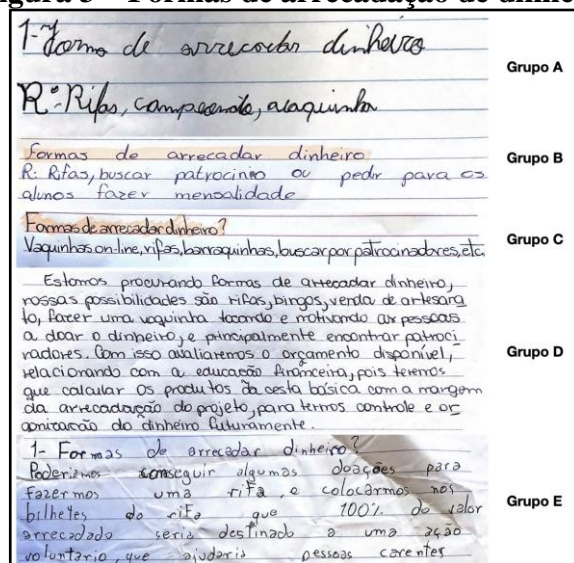 Figura 3 – Formas de arrecadação de dinhe
1- Forma de arrecadar dinheiro
Grupo A
Rº: Rifas, campeonato,
Formas de arrecadar dinheiro
Grupo B
R: Rifas, buscar patrocinio ou pedir para os
alunos fazer mensalidade
Formas de arrecadar dinheiro?
Grupo C
Vaquinhas on-line, rifas, barraquinhas, buscar por patrocinadores, etc.
Estamos procurando formas de arrecadar dinheiro,
nossas possibilidades são rifas, bingos, venda de artesana
to, fazer uma vaquinha tocando e motivando as pessoas
a doar o dinheiro, e principalmente encontrar patroci
nadores. Com isso avaliaremos o orçamento disponível,
Grupo D
relacionando com a educação financeira, pois teremos
que calcular os produtos da cesta básica com a margem
da arrecadação do projeto, para termos controle e or
ganização do dinheiro futuramente.
1- Formas de arrecadar dinheiro?
Poderiamos conseguir algumas doações para
fazermos uma rifa e colocarmos nos
Grupo E
bilhetes da rifa que 100% do valor
arrecadado seria destinado a uma ação
voluntario, que ajudaria pessoas carentes